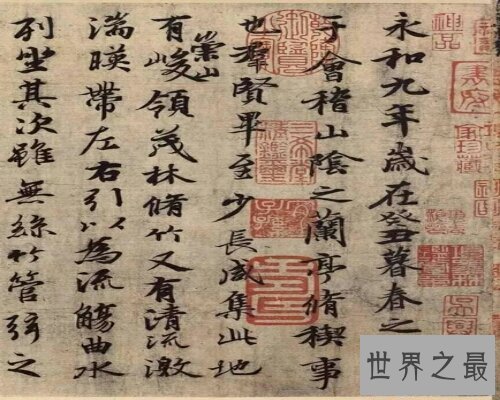 永和九年歲在癸丑暮春之
于會稽山陰之蘭亭脩稧事
也羣賢畢至少長咸集此地
有崇山峻領茂林脩竹又有清流激
湍暎帶左右引以為流觴曲水
列坐其次雖無絲竹管弦之
神品
世界之最